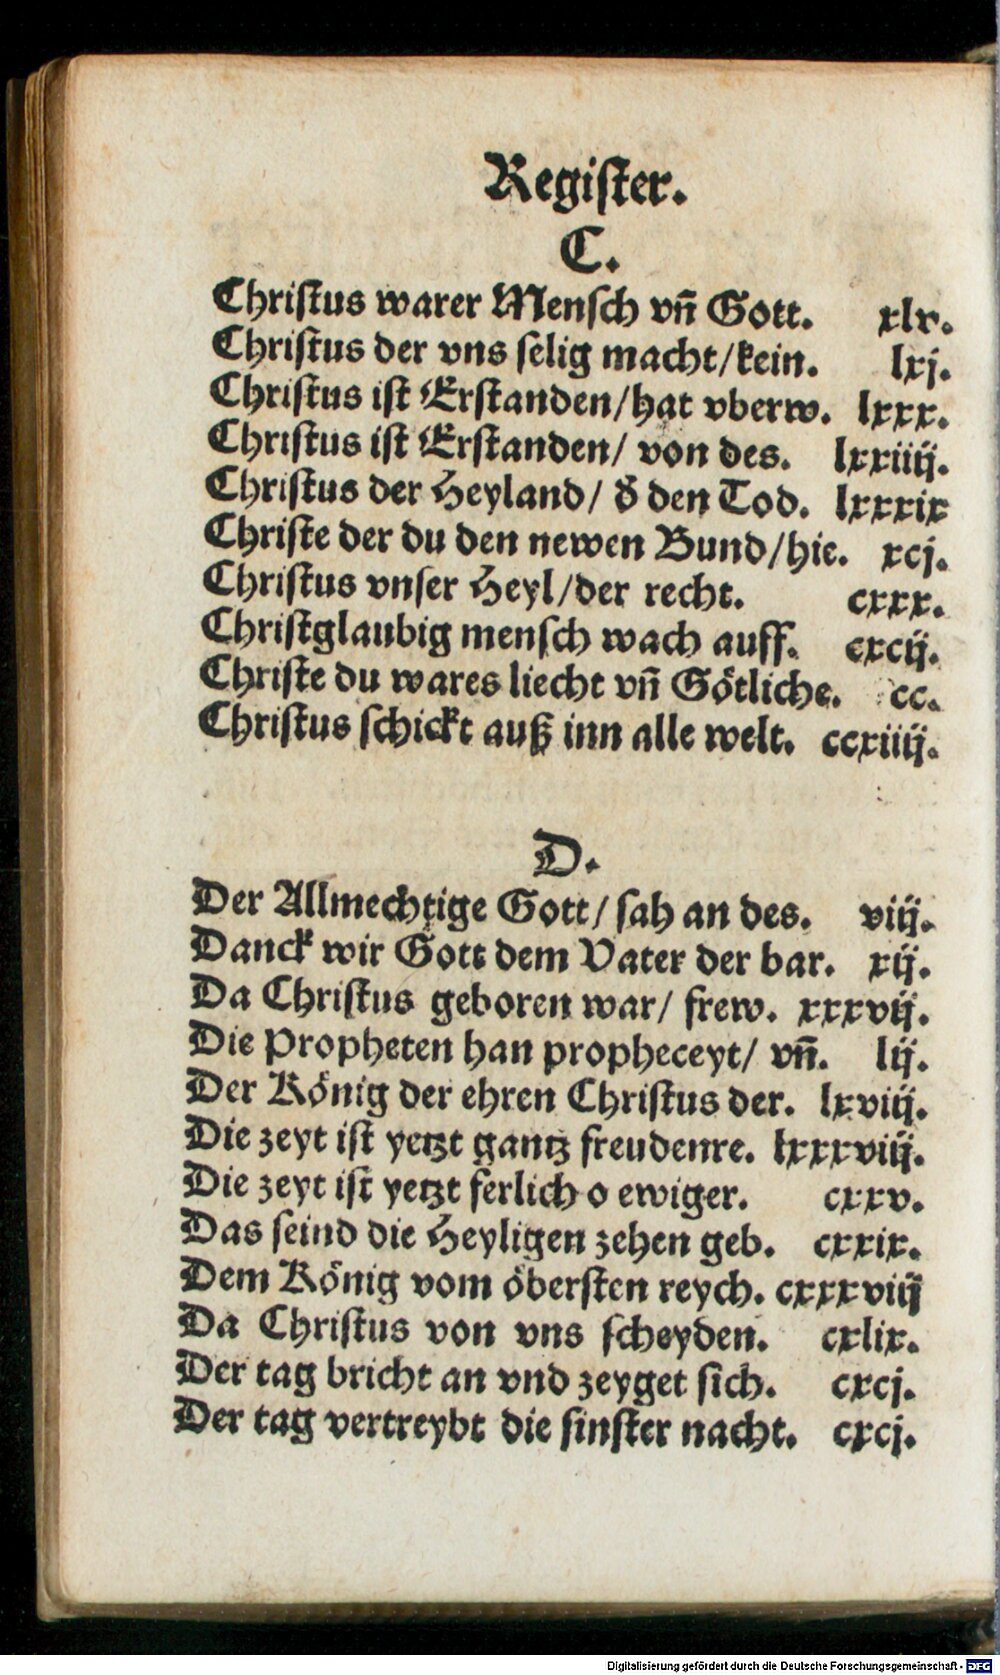 Regiſter.
C.
Chriſtus warer Menſch vñ Gott. xlv.
Chriſtus der vns ſelig macht/kein. lxj.
Chriſtus iſt Erſtanden/hat vberw. lxxx.
Chriſtus iſt Erſtanden/ von des. lxxiiij.
Chriſtus der Heyland/ d̄ den Tod. lxxxix
Chriſte der du den newen Bund/hie. xcj.
Chriſtus vnſer Heyl/der recht. cxxx.
Chriſtglaubig menſch wach auff. cxcij.
Chriſte du wares liecht vñ Götliche. cc.
Chriſtus ſchickt auß inn alle welt. ccxiiij.
D.
Der Allmechtige Gott/ ſah an des. viij.
Danck wir Gott dem Vater der bar. xij.
Da Chriſtus geboren war/ frew. xxxvij.
Die Propheten han propheceyt/ vñ. lij.
Der König der ehren Chriſtus der. lxviij.
Die zeyt iſt yetzt gantz freudenre. lxxxviij.
Die zeyt iſt yetzt ferlich o ewiger. cxxv.
Das ſeind die Heyligen zehen geb. cxxix.
Dem König vom öberſten reych. cxxxviij
Da Chriſtus von vns ſcheyden. cxlix.
Der tag bricht an vnd zeyget ſich. cxcj.
Der tag vertreybt die finſter nacht. cxcj.
Digitalisierung gefördert durch die Deutsche Forschungsgemeinschaft - DFG